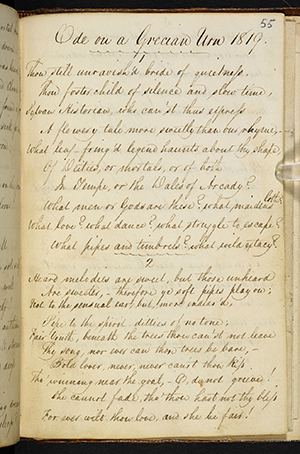 55
Ode on a Grecian Urn 1819.
1
Thou still unravish'd bride of quietness,
Thou foster child of silence and slow time,
Sylvan Historian, who can'st thus express
A flowery tale more sweetly than our rhyme,
What leaf-fring'd legend haunts about thy shape
Of Deities, or mortals, or of both
In Tempe, or the Dales of Arcady?
What men or Gods are these? what maidens loth?
What love? what dance? what struggle to escape?
What pipes and timbrels? what wild extacy?
2
Heard melodies are sweet, but those unheard
Are sweeter, – therefore ye soft pipes play on;
Not to the sensual ear, but, more endear'd
Pipe to the spirit ditties of no tone;
Fair Youth, beneath the trees thou can'st not leave
Thy song, nor ever can those trees be bare, –
Bold lover, never, never can'st thou kiss
Tho' winning near the goal, – O, do not grieve!
She cannot fade, tho' thou hast not thy bliss
For ever wilt thou love, and she be fair!